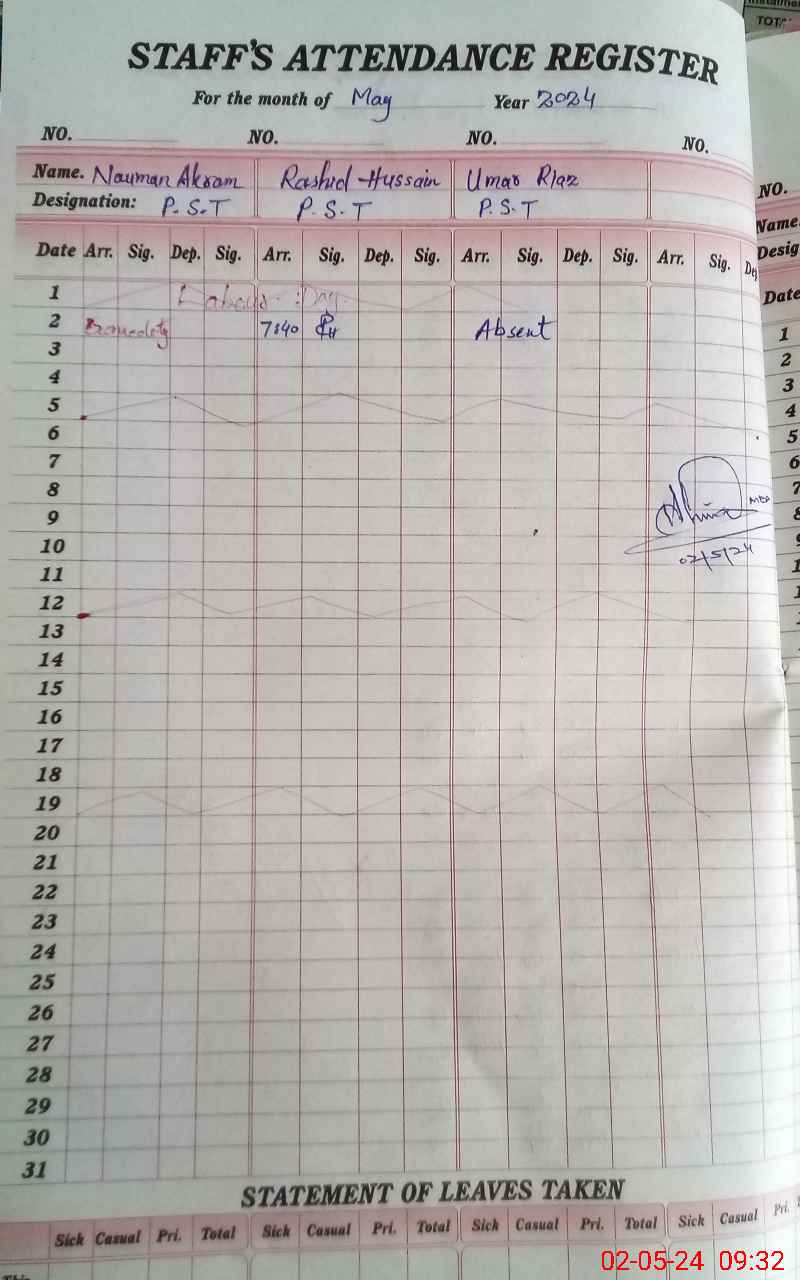 TOTA
STAFF'S ATTENDANCE REGISTER
For the month of May Year 2024
NO. NO. NO. NO. NO.
Name. Nauman Akram Rashid Hussain Umar Riaz Name.
Designation: P.S.T P.S.T P.S.T Desig
Date Arr. Sig. Dep. Sig. Arr. Sig. Dep. Sig. Arr. Sig. Dep. Sig. Arr. Sig. Dep Date
1 Labour Day 1
2 7:40 RH Absent 2
3 3
4 4
5 5
6 6
7 7
8 8
9
10
11
12
13
14
15
16
17
18
19
20
21
22
23
24
25
26
27
28
29
30
31
MEA
02/5/24
STATEMENT OF LEAVES TAKEN
Sick Casual Pri. Total Sick Casual Pri. Total Sick Casual Pri. Total Sick Casual Pri.
02-05-24 09:32